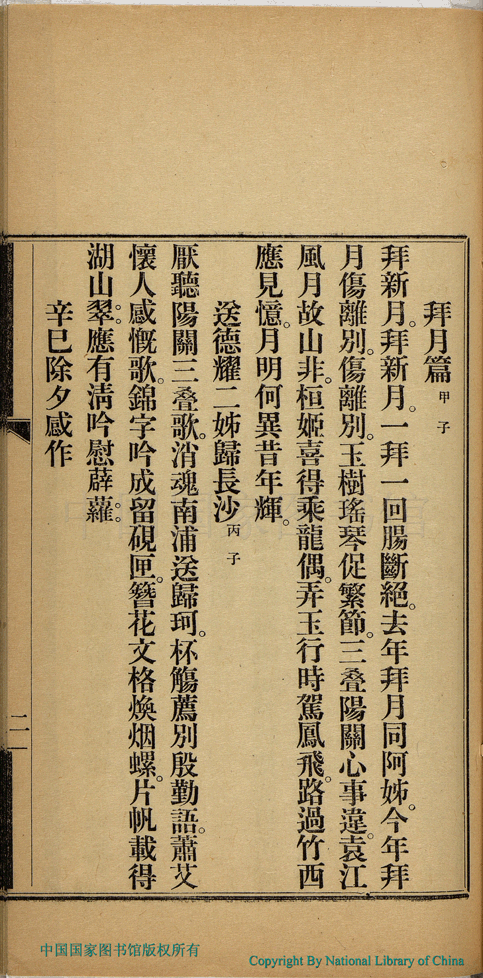 拜月篇甲子
拜新月。拜新月。一拜一回腸斷絕。去年拜月同阿姊。今年拜
月傷離別。傷離別。玉樹瑤琴促繁節。三叠陽關心事違。袁江
風月故山非。桓姬喜得乘龍偶。弄玉行時駕鳳飛。路過竹西
應見憶。月明何異昔年輝。
送德耀二姊歸長沙丙子
厭聽陽關三叠歌。消魂南浦送歸珂。杯觴薦別殷勤語。蕭艾
懷人感慨歌。錦字吟成留硯匣。簪花文格煥烟螺。片帆載得
湖山翠。應有清吟慰薜蘿。
辛巳除夕感作
二
中国国家图书馆版权所有
Copyright By National Library of China